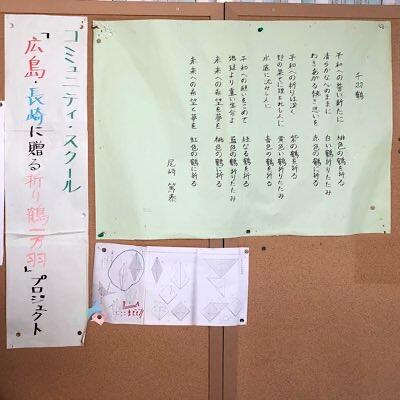 コミュニティ・スクール
「広島・長崎に贈る折り鶴一万羽」プロジェクト
千羽鶴
平和への誓い新たに 桃色の鶴を折る
清らかな心のままに 白い鶴折りたたみ
わきあがる熱き思いを 赤色の鶴に折る
平和への祈りは深く 紫の鶴を折る
野の果てに埋もれし人に 黄色い鶴折りたたみ
水底に沈みし人に 青色の鶴に折る
平和への願いをこめて 緑なる鶴を折る
地球より重い生命よ 藍色の鶴折りたたみ
未来への希望と夢を 桃色の鶴に折る
未来への希望と夢を 虹色の鶴に折る
尾崎